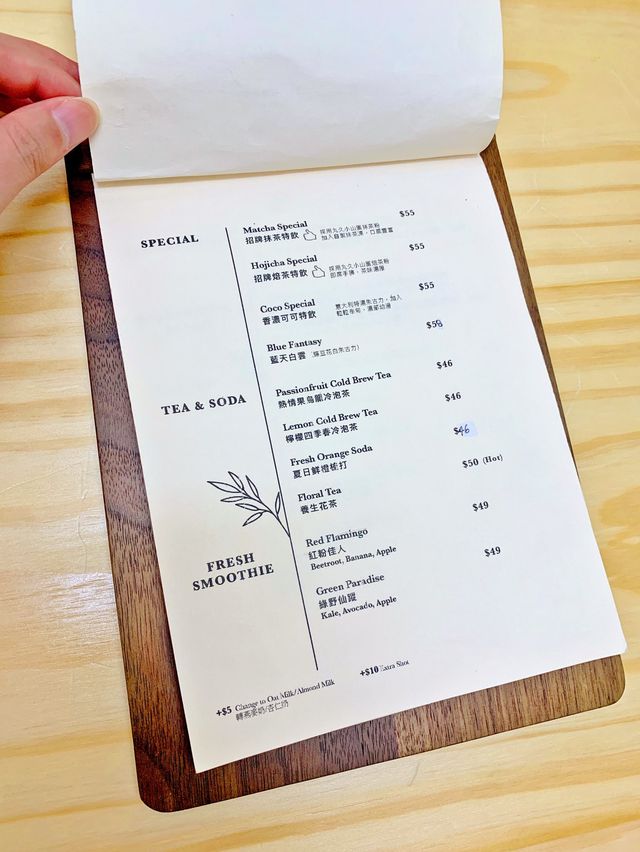 SPECIAL
Matcha Special $55
招牌抹茶特飲 採用丸久小山園抹茶粉
加入自製抹茶凍，口感豐富
Hojicha Special $55
招牌焙茶特飲 採用丸久小山園焙茶粉
即席手揉，茶味濃厚
Coco Special $55
香濃可可特飲 意大利特濃朱古力，加入
Blue Fantasy $58
藍天白雲 (蝶豆花白朱古力)
TEA & SODA
Passionfruit Cold Brew Tea $46
熱情果烏龍冷泡茶
Lemon Cold Brew Tea $46
檸檬四季春冷泡茶
Fresh Orange Soda $46
夏日鮮橙梳打
Floral Tea $50 (Hot)
養生花茶
FRESH
SMOOTHIE
Red Flamingo $49
紅粉佳人
Beetroot, Banana, Apple
Green Paradise $49
綠野仙蹤
Kale, Avocado, Apple
+$5 Change to Oat Milk/Almond Milk +$10 Extra Shot
轉燕麥奶/杏仁奶